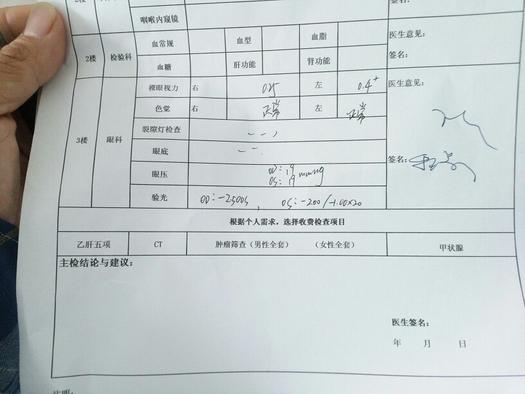 咽喉内窥镜
2楼 检验科 血常规 血型 血脂 医生意见:
血糖 肝功能 肾功能 签名:
3楼 眼科 裸眼视力 右 左 0.4+ 医生意见:
色觉 右 正常 左 正常
裂隙灯检查
眼底
眼压 OD:19 mmHg
OS:19
签名:
验光 OD:-2.50DS, OS:-2.00/-1.00×20
根据个人需求,选择收费检查项目
乙肝五项 CT 肿瘤筛查(男性全套) (女性全套) 甲状腺
主检结论与建议:
医生签名:
年 月 日